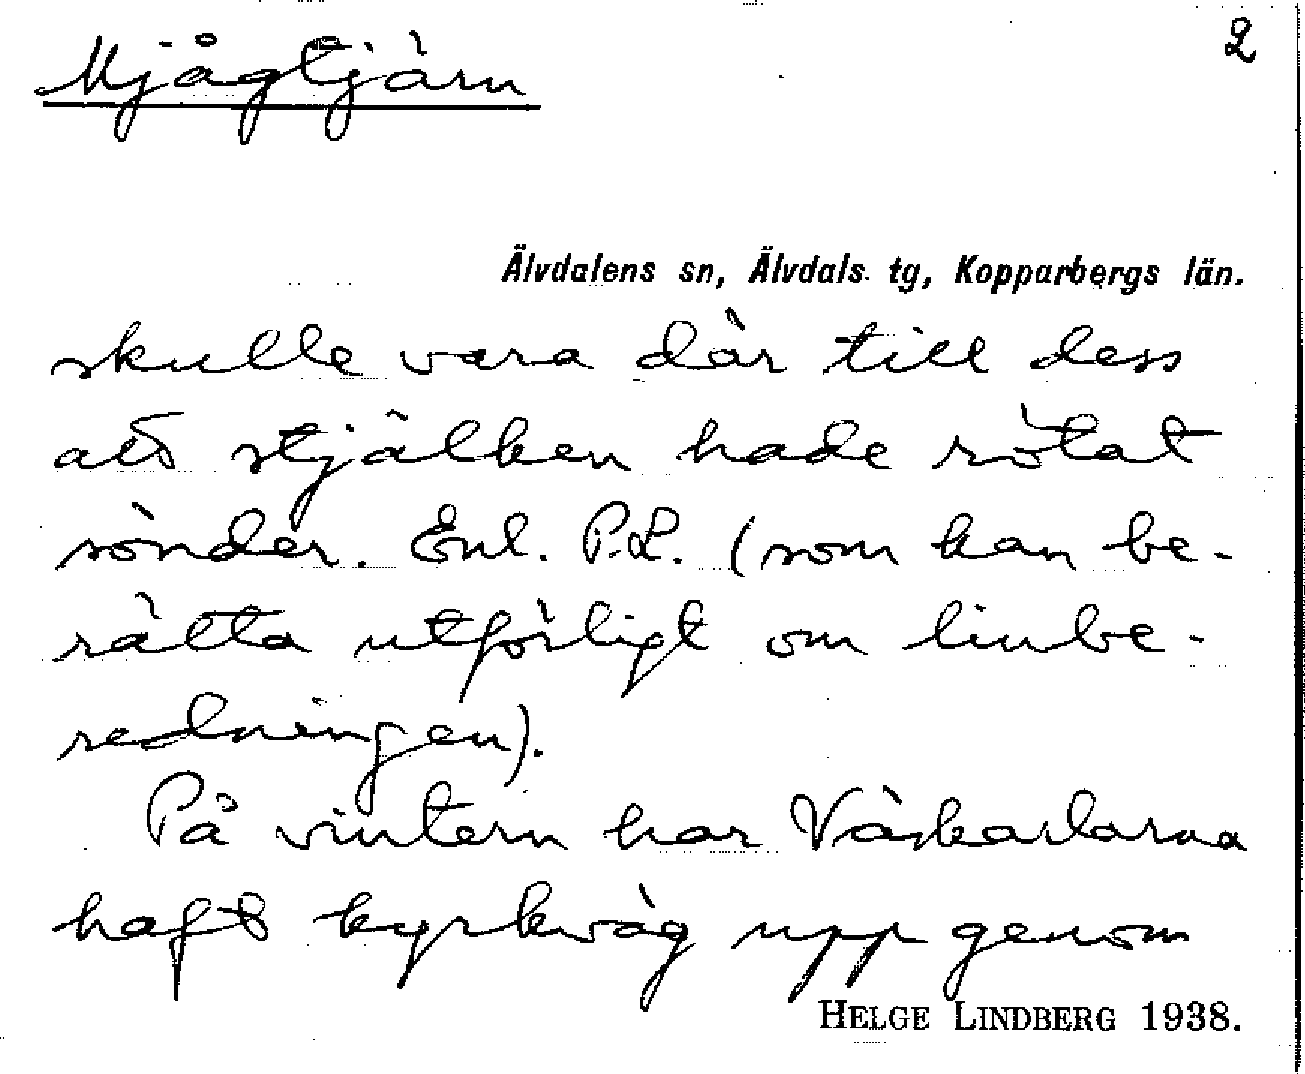 Mjågtjärn
2
Älvdalens sn, Älvdals tg, Kopparbergs län.
skulle vara där till dess
att stjälken hade rötat
sönder. Enl. P.L. (som kan be-
rätta utförligt om linbe-
redningen).
På vintern har Väskarlarna
haft kyrkväg upp genom
HELGE LINDBERG 1938.